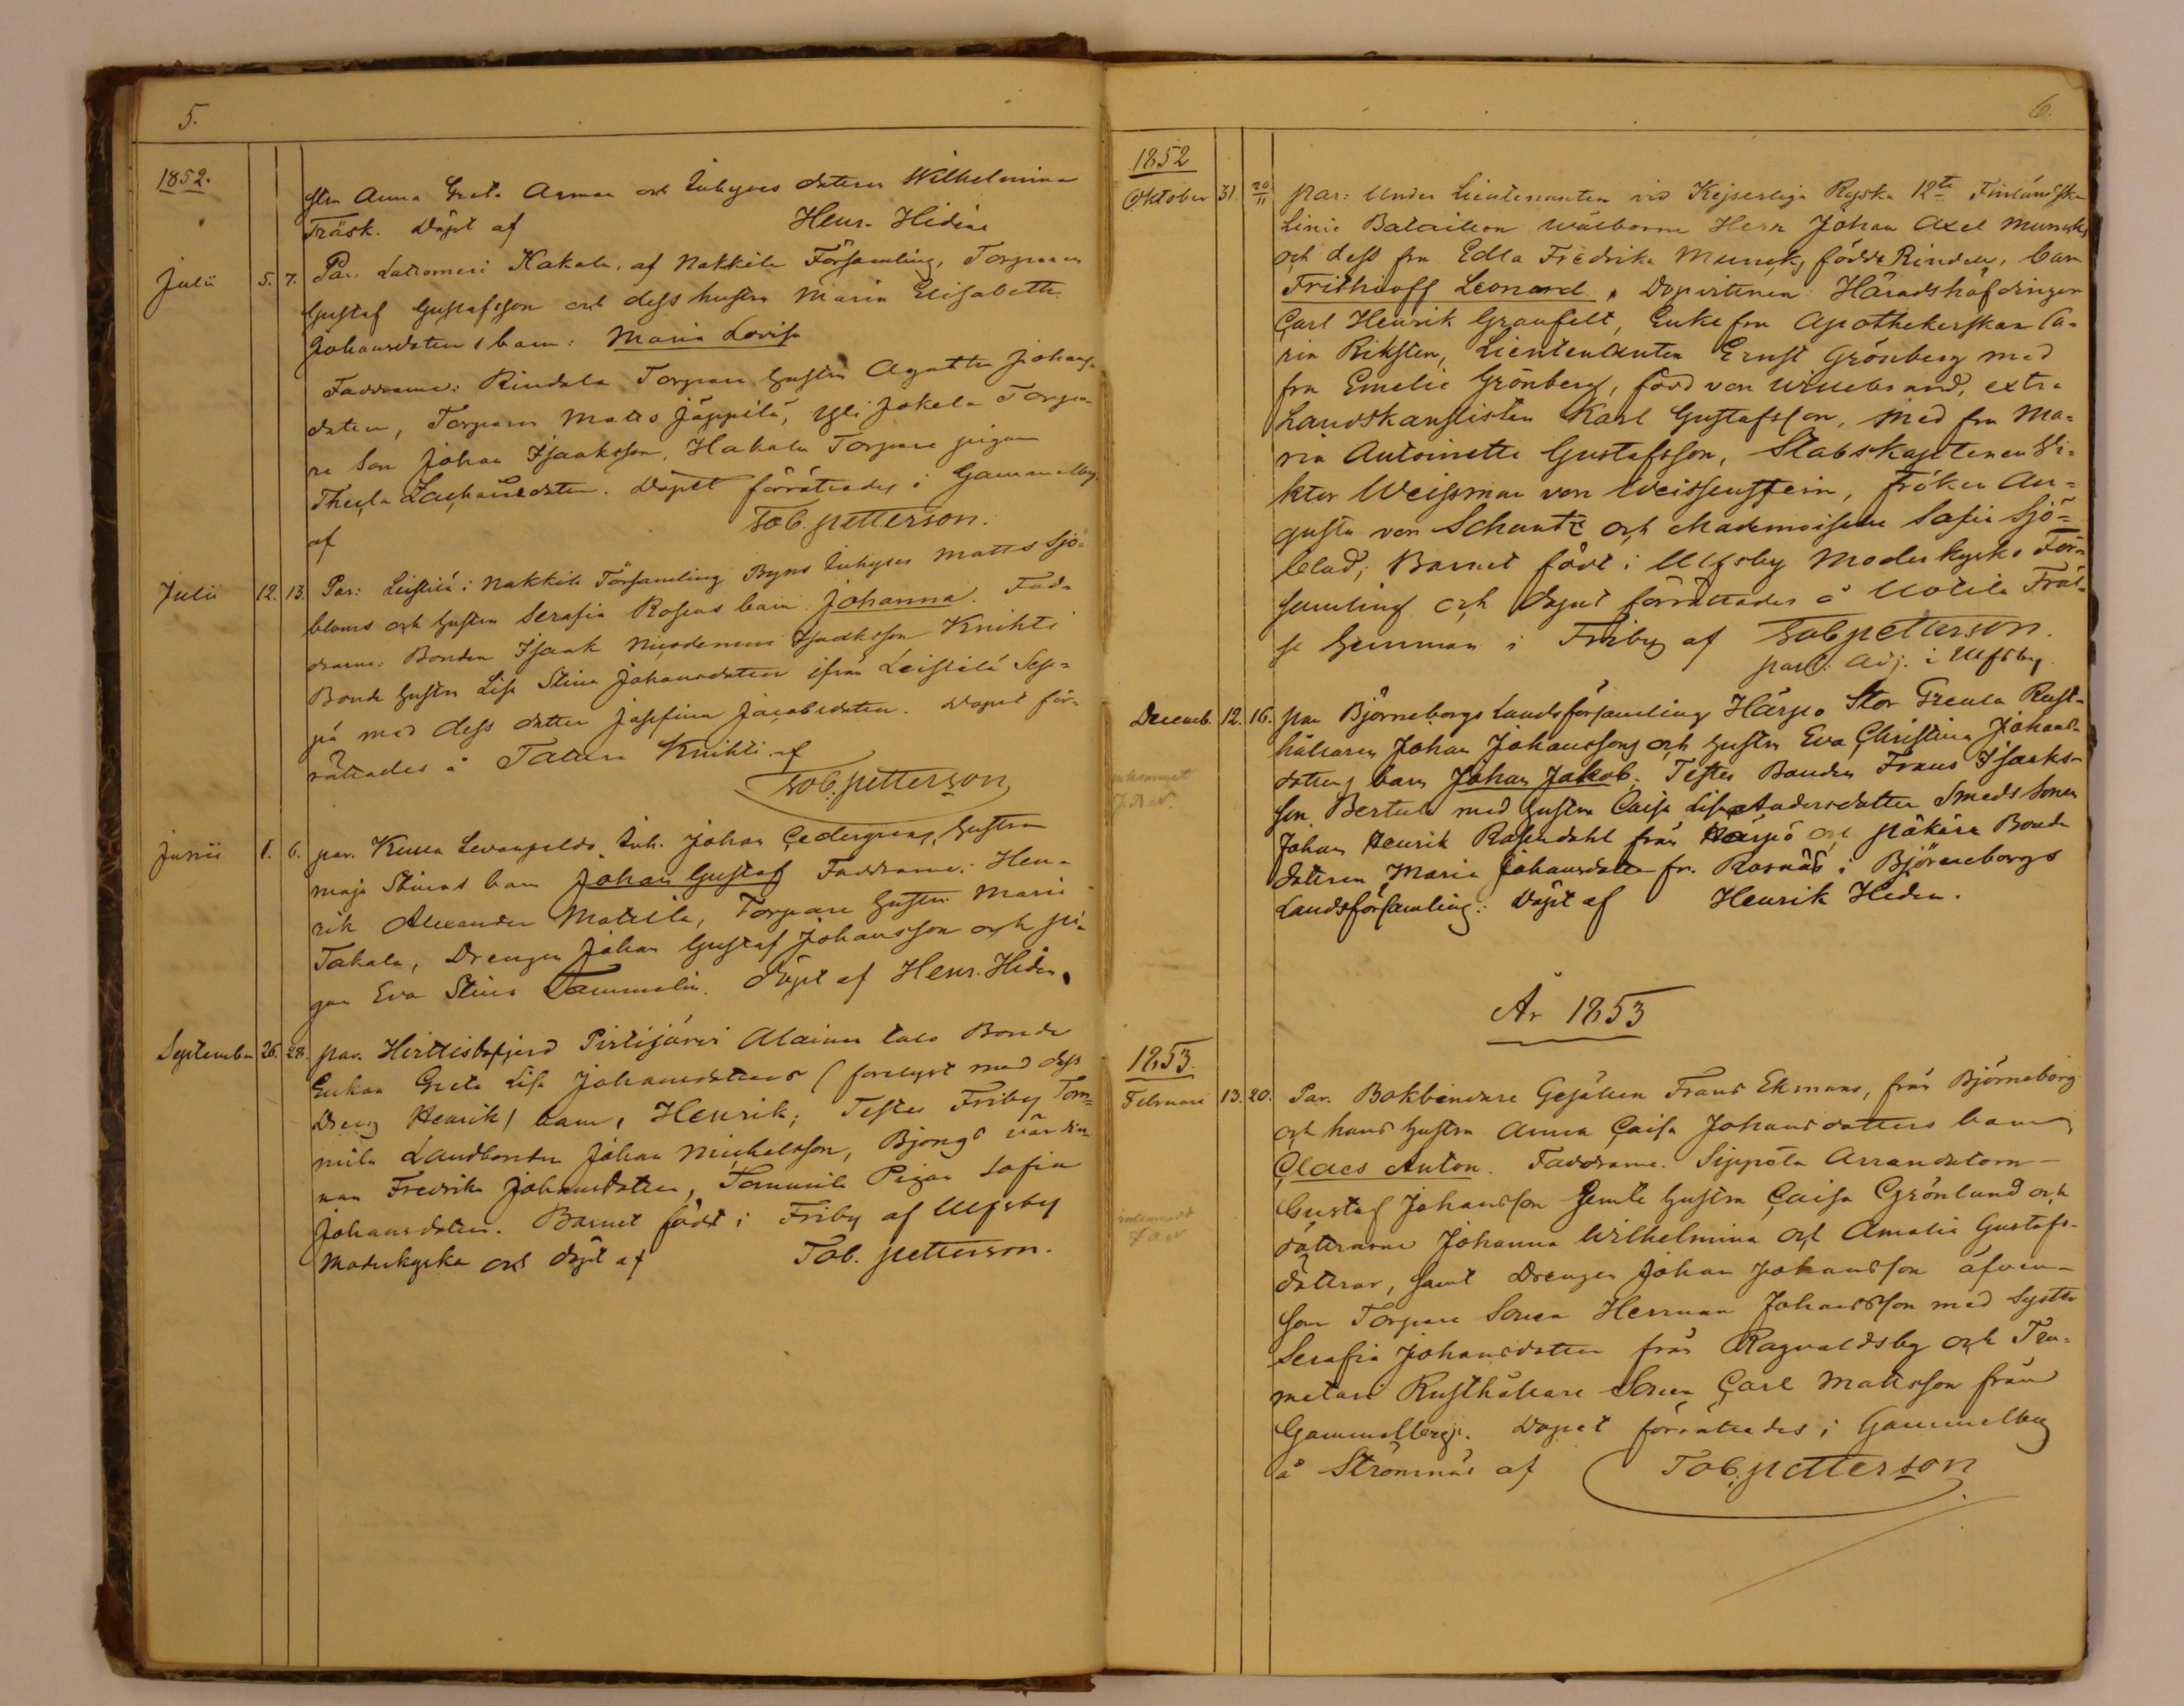 5.
1852.
stru Anna Greta Arman och Inhyses dottren Wilhelmina
Träsk. Döpt af Henr. Hidén
Julii 5. 7. Par. Lattomeri Kakala, af Nakkila Församling, Torparen
Gustaf Gustafsson och dess hustru Maria Elisabeth
Johansdotters barn: Maria Lovisa
Faddrarne: Rindala Torpare hustru Agatha Johans-
dotter, Torparen Matts Jäppilä, Yli Jokela Torpa-
re Son Johan Isaaksson, Hakala Torpare pigan
Thecla Zachariedotter. Döptt förrättades i Gammelby
af Tob. petterson.
Julii 12. 13. Par: Leistilä i Nakkila Församling Byns Inhyses Matts Sjö-
bloms och hustru Serafia Rosens barn Johanna. Fad-
drarne: Bonden Isaak Nicodemus Isaaksson Knihti
Bonde hustru Lisa Stina Johansdotter ifrån Leistilä Sep-
pä med dess dotter Josefina Jacobsdotter. Dopet för-
rättades å Tattara Knihti af
Tob. petterson
Junii 1. 6. par. Kuusa Levanpelds Inh. Johan Cedergrens, hustru
Maja Stinas barn Johan Gustaf Faddrarne: Hen-
rik Alexander Mattila, Torpare hustru Maria
Takala, Drengen Johan Gustaf Johansson och pi-
gan Eva Stina Tammelin. Döpt af Henr. Hidén.
September 26. 28. par. Hirttisbofjerd Pirtijärvi Alainen talo Bonde
Enkan Greta Lisa Johansdotters (förelyst med dess
Dreng Henrik) barn, Henrik; Testes Friby Tom-
mila Landbonden Johan Michelsson, Bjongs värdin-
nan Fredrika Johansdotter, Tommila Pigan Sofia
Johansdotter. Barnet född i Friby af Ulfsby
Moderkyrka och döpt af Tob. petterson.
6.
1852
Oktober 31. 20/11 par: Under Lieutenanten vid Kejserliga Ryska 12te Finländska
Linie Bataillon Wälborne Herr Johan Axel Muncks
och dess fru Edla Fredrika Munck, födde Rindell, barn
Frithioff Leonard. Dopvittnen: Häradshöfdingen
Carl Henrik Granfelt, Enkefru Apothekerskan Ca-
rin Riksten, Lieutenanten Ernst Grönberg med
fru Emelie Grönberg, född von Willebrand, extra
Landskanslisten Karl Gustafsson, med fru Ma-
ria Antoinette Gustafsson, Stabskaptenen Vi-
ktor Weissman von Weissenstein, fröken Au-
gusta von Schantz och Mademoiselle Sofia Sjö-
blad; Barnet född i Ulfsby Moderkyrko För-
samling och dopet förrättades å Uotila Fräl-
se Hemman i Friby af Tob petterson.
past: Adj. i Ulfsby
Decemb. 12. 16. par Björneborgs Landsförsamling Härpo Stor Greula Rust-
hållaren Johan Johanssons och hustru Eva Christina Johans-
dotters, barn Johan Jakob. Testes Bonden Frans Isaaks-
son Bertula med hustru Caisa Lisa Andersdotter Smeds Sonen
Johan Henrik Rosendahl från Härpö och Påkära Bonde
dottren Maria Johansdotter fr. Rosnäs i Björneborgs
Landsförsamling: Döpt af Henrik Heden.
År 1853
1853.
Februari 13. 20. Par. Bokbindare Gesällen Frans Ekmans, från Björneborg
och hans hustru Anna Caisa Johansdotters barn
Claes Anton. Faddrarne. Sippola Arrendatorn
Gustaf Johansson Jemte hustru Caisa Grönlund och
döttrarne Johanna Wilhelmina och Amalia Gustafs-
döttrar, samt Drengen Johan Johansson äfven-
som Torpare Sonen Herman Johansson med Syster
Serafia Johansdotter från Ragvaldsby och Tru-
metari Rusthållare Sonen Carl Mattsson från
Gammelby. Dopet förrättades i Gammelby
å Strömnäs af Tob. petterson